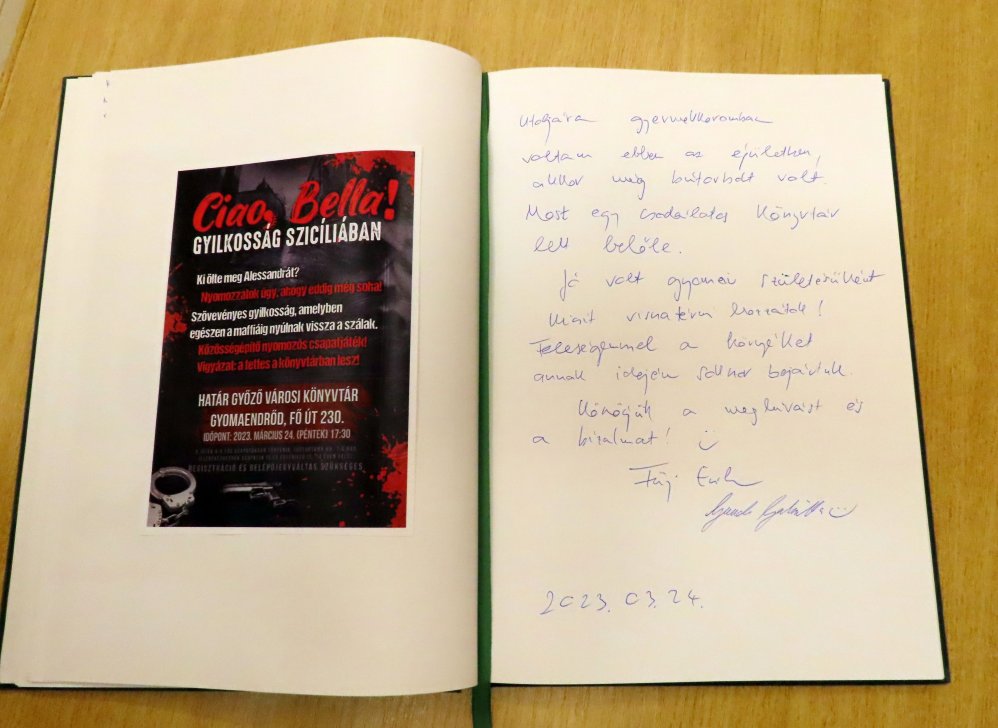 Ciao, Bella!
GYILKOSSÁG SZICÍLIÁBAN
Ki ölte meg Alessandrát?
Nyomozzatok úgy, ahogy eddig még soha!
Szövevényes gyilkosság, amelyben
egészen a maffiáig nyúlnak vissza a szálak.
Közösségépítő nyomozós csapatjáték!
Vigyázat: a tettes a könyvtárban lesz!
HATÁR GYŐZŐ VÁROSI KÖNYVTÁR
GYOMAENDRŐD, FŐ ÚT 230.
IDŐPONT: 2023. MÁRCIUS 24. (PÉNTEK) 17:30
REGISZTRÁCIÓ ÉS BELÉPŐJEGYVÁLTÁS SZÜKSÉGES
Utoljára gyermekkoromban
voltam ebben az épületben,
akkor még bútorbolt volt.
Most egy csodálatos könyvtár
lett belőle.
Jó volt gyomai születésűként
kicsit visszatérni hozzátok!
Feleségemmel a környéket
annak idején sokszor bejártuk.
Köszönjük a meghívást és
a bizalmat!
2023. 03. 24.